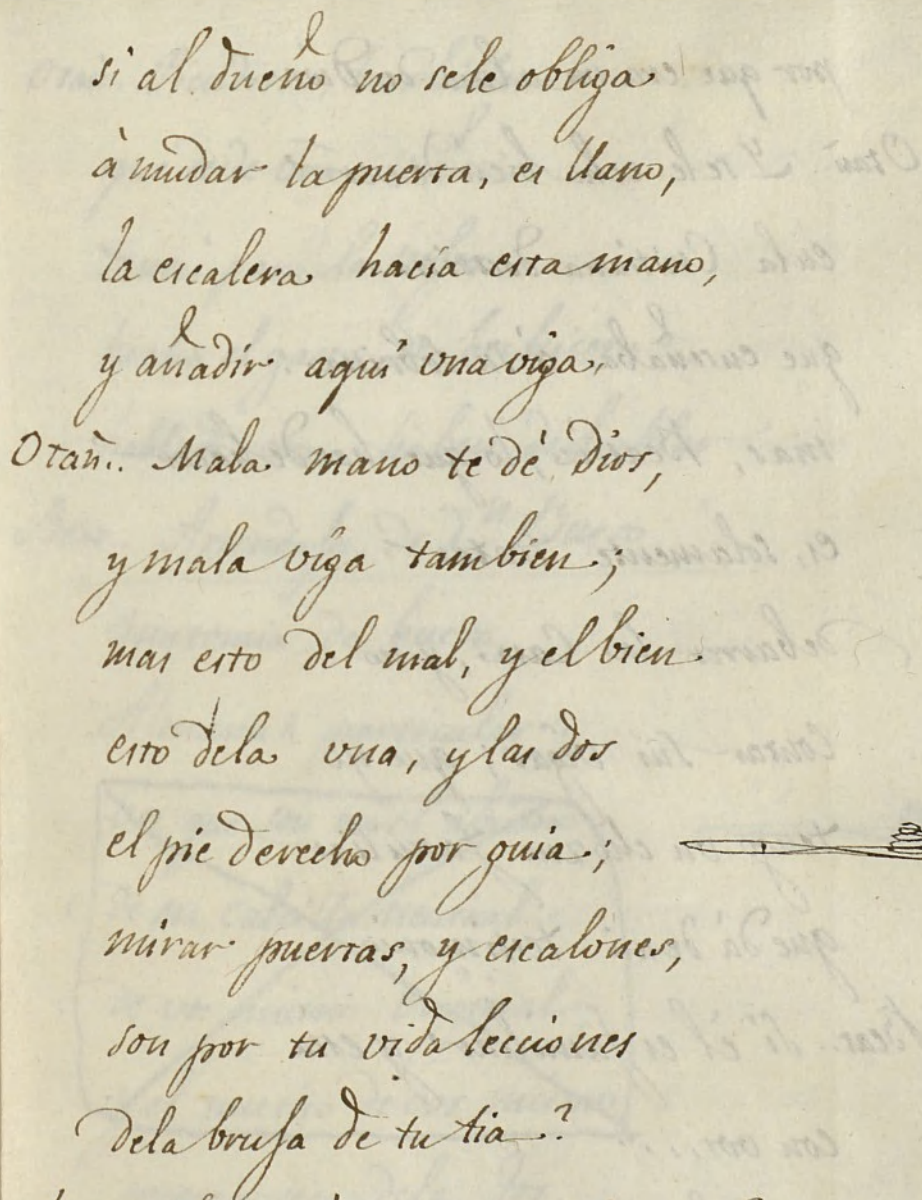 si al dueño no sele obliga
à mudar la puerta, es llano,
la escalera hacia esta mano,
y añadir aqui una viga.
Otañ.. Mala mano te dé Dios,
y mala viga tambien;
mas esto del mal, y el bien
esto dela una, y las dos
el pie derecho por guia;
mirar puertas, y escalones,
son por tu vida lecciones
dela bruja de tu tia?